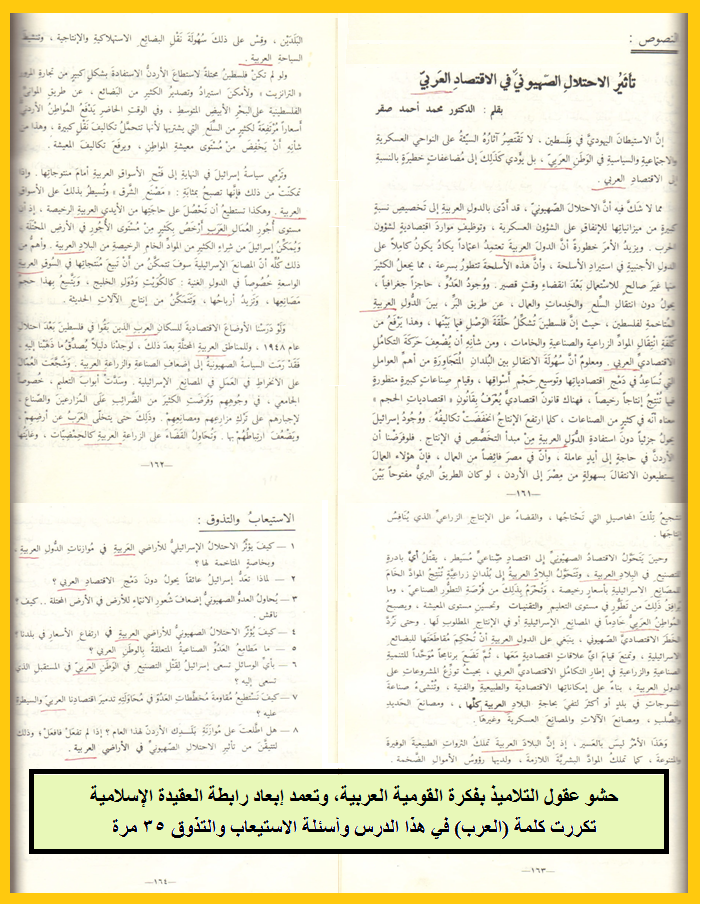 النصوص :
تأثيرُ الاحتلالِ الصهيونيِّ في الاقتصادِ العَرَبيِّ
بقلم : الدكتور محمد أحمد صقر
إنَّ الاستيطانَ اليهوديَّ في فِلسطين ، لا تَقْتصِرُ آثارُهُ السيِّئةُ على النواحي العسكريةِ
والاجتماعيةِ والسياسيةِ في الوَطَنِ العَرَبيِّ ، بل يؤدي كذلكَ إلى مُضاعفاتٍ خطيرةٍ بالنسبةِ
إلى الاقتصادِ العربي .
مما لا شَكَّ فيه أنَّ الاحتلالَ الصُهيونيَّ ، قد أدّى بالدولِ العربيةِ إلى تَخصيصِ نسبةٍ
كبيرةٍ من ميزانياتِها للإنفاقِ على الشؤونِ العسكرية ، وتوظيفِ مواردَ اقتصاديةٍ لشؤونِ
الحرب . ويزيدُ الأمرَ خطورةً أنَّ الدولَ العربيةَ تعتمدُ اعتماداً يكادُ يكونُ كاملاً على
الدولِ الأجنبيةِ في استيرادِ الأسلحة ، وأنَّ هذه الأسلحةَ تتطورُ بسرعة ، مما يجعلُ الكثيرَ
منها غيرَ صالحٍ للاستعمالِ بَعْدَ انقضاءِ وقتٍ قصير . ووجودُ العَدُوِّ ، حاجزاً جغرافياً ،
يحولُ دونَ انتقالِ السلعِ والخدماتِ والعمالِ ، عن طريقِ البَرِّ ، بينَ الدُّولِ العربيةِ
المتاخمةِ لفلسطين ، حيث إنَّ فلسطينَ تُشكِّلُ حَلْقةَ الوَصْلِ فيما بَيْنَها ، وهذا يَرفعُ من
كُلفةِ انتقالِ الموادِ الزراعيةِ والصناعيةِ والخامات ، ومن شأنِهِ أن يُضْعِفَ حركةَ التكامُلِ
الاقتصاديِّ العربي . ومعلومٌ أنَّ سُهولةَ الانتقالِ بينَ البلدانِ المُتجاوِرةِ من أهمِّ العواملِ
التي تُساعِدُ في دَمْجِ اقتصادياتِها وتوسيعِ حَجْمِ أسْواقِها ، وقيامِ صناعاتٍ كبيرةٍ متطورةٍ
فيها تُنْتِجُ إنتاجاً رخيصاً ، فهناك قانونٌ اقتصاديٌّ يُعْرَفُ بقانونِ « اقتصادياتِ الحجم »
معناه أنه في كثيرٍ من الصناعات ، كلما ارتفعَ الإنتاجُ انخفَضَتْ تكاليفُهُ . ووُجودُ إسرائيلَ
يحولُ جزئياً دونَ استفادةِ الدُّوَلِ العربيةِ مِنْ مبدأِ التخَصُّصِ في الإنتاج . فلو فَرَضْنا أن
الأردنَّ في حاجةٍ إلى أيدٍ عاملة ، وأنَّ في مصرَ فائِضاً من العمالِ ، فإنَّ هؤلاءِ العمالَ
يستطيعونَ الانتقالَ بسهولةٍ من مِصْرَ إلى الأردن ، لو كان الطريقُ البريُّ مفتوحاً بَيْنَ
—١٦١—
البَلَدَيْن ، وقِسْ على ذلكَ سُهولةَ نَقْلِ البضائِعِ الاستهلاكيةِ والإنتاجية ، وتنشيطَ
السياحةِ العربية .
ولو لم تكنْ فلسطينُ محتلةً لاستطاعَ الأردنُّ الاستفادةَ بشكلٍ كبيرٍ من تجارةِ المرورِ
« الترانزيت » ولأمكنَ استيرادُ وتصديرُ الكثيرِ من البضائعِ ، عن طريقِ الموانئِ
الفلسطينيةِ على البحرِ الأبيضِ المتوسط ، وفي الوقتِ الحاضرِ يَدْفَعُ المُواطِنُ الأردنيُّ
أسعاراً مُرْتفِعةً لكثيرٍ من السِّلَعِ التي يشتريها لأنها تتحملُ تكاليفَ نَقْلٍ كبيرة ، وهذا من
شأنِهِ أنْ يَخْفِضَ مِنْ مُسْتوى معيشةِ المواطنِ ، ويرفَعَ تكاليفَ المعيشة .
وتَرْمي سياسةُ إسرائيلَ في النهايةِ إلى فَتْحِ الأسواقِ العربيةِ أمامَ منتوجاتِها . وإذا
تمكنتْ من ذلكَ فإنَّها تصبحُ بمثابةِ : « مَصْنَعِ الشَّرقِ » وتُسيطرُ بذلكَ على الأسواقِ
العربية . وهكذا تستطيعُ أنْ تَحْصُلَ على حاجتِها من الأيدي العربيةِ الرخيصة ، إذ أن
مستوى أُجورِ العُمالِ العَرَبِ أرْخَصُ بكثيرٍ مِنْ مُستوى الأجورِ في الأرضِ المُحْتَلّة ،
ويُمَكِّنُ إسرائيلَ من شِراءِ الكثيرِ من الموادِّ الخامِ الرخيصةِ من البلادِ العربية . وأهمُّ من
ذلكَ كُلِّهِ أنَّ المصانعَ الإسرائيليةَ سوفَ تتمكنُ من أنْ تَبيعَ مُنتجاتِها في السُوقِ العربيةِ
الواسعةِ خصُوصاً في الدولِ الغنية : كالكُوَيْتِ ودُوَلِ الخليج ، ويَتَّسِعُ بِهذا حجمُ
مَصانِعِها ، وتَزيدُ أرباحُها ، وتَتَمَكَّنُ من إنتاجِ الآلاتِ الحديثة .
ولَوْ دَرَسْنا الأوضاعَ الاقتصاديةَ للسكانِ العربِ الذينَ بَقُوا في فلسطينَ بَعْدَ احتلالِ
عام ١٩٤٨ ، وللمناطقِ العربيةِ المحتلّةِ بعدَ ذلكَ ، لوجدْنا دليلاً يُصدِّقُ ما ذَهَبْنا إليه ،
فقَدْ رَمَتِ السياسةُ الصهيونيةُ إلى إضعافِ الصناعةِ والزراعةِ العربية . وشَجَّعَتِ العُمّالَ
على الانخراطِ في العَمَلِ في المصانعِ الإسرائيلية . وسَدَّتْ أبوابَ التعليمِ ، خُصُوصاً
الجامعي ، في وجُوهِهِمْ وفَرَضَتِ الكثيرَ مِنَ الضرائبِ على المُزارِعينَ والصُنّاعِ ،
لإجبارِهِم على تَرْكِ مزارعِهِم ومصانِعِهِمْ . وذلكَ حتى يتخلّى العَرَبُ عن أرضِهِمْ
ويَضْعُفَ ارتباطُهُمْ بها . وتُحاوِلُ القضاءَ على الزراعةِ العربيةِ كالحِمْضِيّاتِ ، وغايَتُها
—١٦٢—
تشجيعُ تِلْكَ المحاصيلِ التي تَحْتاجُها ، والقضاءُ على الإنتاجِ الزراعيِّ الذي يُنافِسُ
إنتاجَها .
وحينَ يَتَحَوَّلُ الاقتصادُ الصهيونيُّ إلى اقتصادٍ صِناعيٍّ مُسَيْطِر ، يقتُلُ أيَّ بادرةٍ
للتصنيعِ في البلادِ العربية ، وتَتَحَوَّلُ البلادُ العربيةُ إلى بُلدانٍ زراعيَّةٍ تُنْتِجُ الموادَّ الخامَ
للمصانعِ الإسرائيليةِ بأسعارٍ رخيصة ، وتُحْرَمُ بِذلِكَ مِن فُرْصَةِ التَّطوُّرِ الصِّناعي ، وما
يُرافِقُ ذلِكَ من تَطَوُّرٍ في مستوى التعليمِ والتقنيات وتحسينِ مستوى المعيشة ، ويصبحُ
المُواطِنُ العربيُّ خادِماً في المصانعِ الإسرائيليةِ أو في الإنتاجِ المطلوبِ لها . وحتى نَرُدَّ
الخطَرَ الاقتصاديَّ الصهيوني ، ينبغي على الدولِ العربيةِ أنْ تُحْكِمَ مُقاطَعَتَها للبضائعِ
الاسرائيلية ، وتمنعَ قيامَ ايِّ علاقاتٍ اقتصاديةٍ مَعَها ، ثُمَّ تَضَعَ بَرنامجاً مُوَحَّداً للتنميةِ
الصناعيةِ والزراعيةِ في إطارِ التكاملِ الاقتصاديِّ العربي ، بحيثُ توزعُ المشروعاتِ على
الدولِ العربية ، بناءً على إمكاناتِها الاقتصاديةِ والطبيعيةِ والفنية ، وتُنْشىءُ صناعةَ
المنسوجاتِ في بلدٍ أو أكثرَ لتفيَ بحاجةِ البلادِ العربيةِ كلِّها ، ، ومصانعَ الحديدِ
والصُّلب ، ومصانعَ الآلاتِ والمصانعَ العسكريةَ وغيرَها .
وهذا الأمرُ ليسَ بالعسير ، إذ إنَّ البلادَ العربيةَ تملكُ الثرواتِ الطبيعيةَ الوفيرةَ
والمتنوعة ، كما تملكُ الموادَّ البشريةَ اللازمة ، ولديها رؤوسُ الأموالِ الضخمة .
—١٦٣—
الاستيعابُ والتذوق :
١ — كيفَ يؤثِّرُ الاحتلالُ الإسرائيليُّ للأراضي العربيةِ في مُوازَناتِ الدُّولِ العربية ،
وبخاصةٍ المتاخمة لها ؟
٢ — لماذا تَعُدُّ إسرائيلُ عائقاً يحولُ دونَ دَمْجِ الاقتصادِ العربي ؟
٣ — يُحاولُ العدوُّ الصهيونيُّ إضعافَ شُعورِ الانتماءِ للأرضِ في الأرضِ المحتلة .. كيف ؟
ناقش .
٤ — كيفَ يُؤثِّرُ الاحتلالُ الصهيونيُّ للأراضي العربيةِ في ارتفاعِ الأسعارِ في بلدنا ؟
٥ — ما مَطامِعُ العَدُوِّ الصناعيةُ المتعلقةُ بالوطنِ العربي ؟
٦ — بأيِّ الوسائلِ تسعى إسرائيلُ لِقَتْلِ التصنيعِ في الوَطَنِ العربيِّ في المستقبلِ الذي
تسعى إليه ؟
٧ — كيفَ نَسْتطيعُ مُقاومةَ مُخططاتِ العَدُوِّ في مُحاوَلَتِهِ تدميرَ اقتصادِنا العربيِّ والسيطرةَ
عليه ؟
٨ — هل اطَّلَعْتَ على مُوازَنَةِ بلدك الأردنِّ لهذا العام ؟ إذا لم تفعَلْ فافعَلْ ؛ وذلك
لتتيقَّنَ من تأثيرِ الاحتلالِ الصهيونيِّ في الأراضي العربية .
—١٦٤—
حشو عقول التلاميذ بفكرة القومية العربية، وتعمد إبعاد رابطة العقيدة الإسلامية
تكررت كلمة (العرب) في هذا الدرس وأسئلة الاستيعاب والتذوق ٣٥ مرة